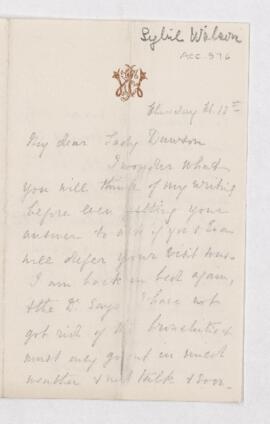 Sybil Wilson
Acc 976
My dear Lady Dawson
I wonder what
you will think of my writing
before even getting your
answer to
will defer your visit
I am back in bed again,
& the Dr. says I have not
got rid of the bronchitis &
must only go out in
weather & not talk &